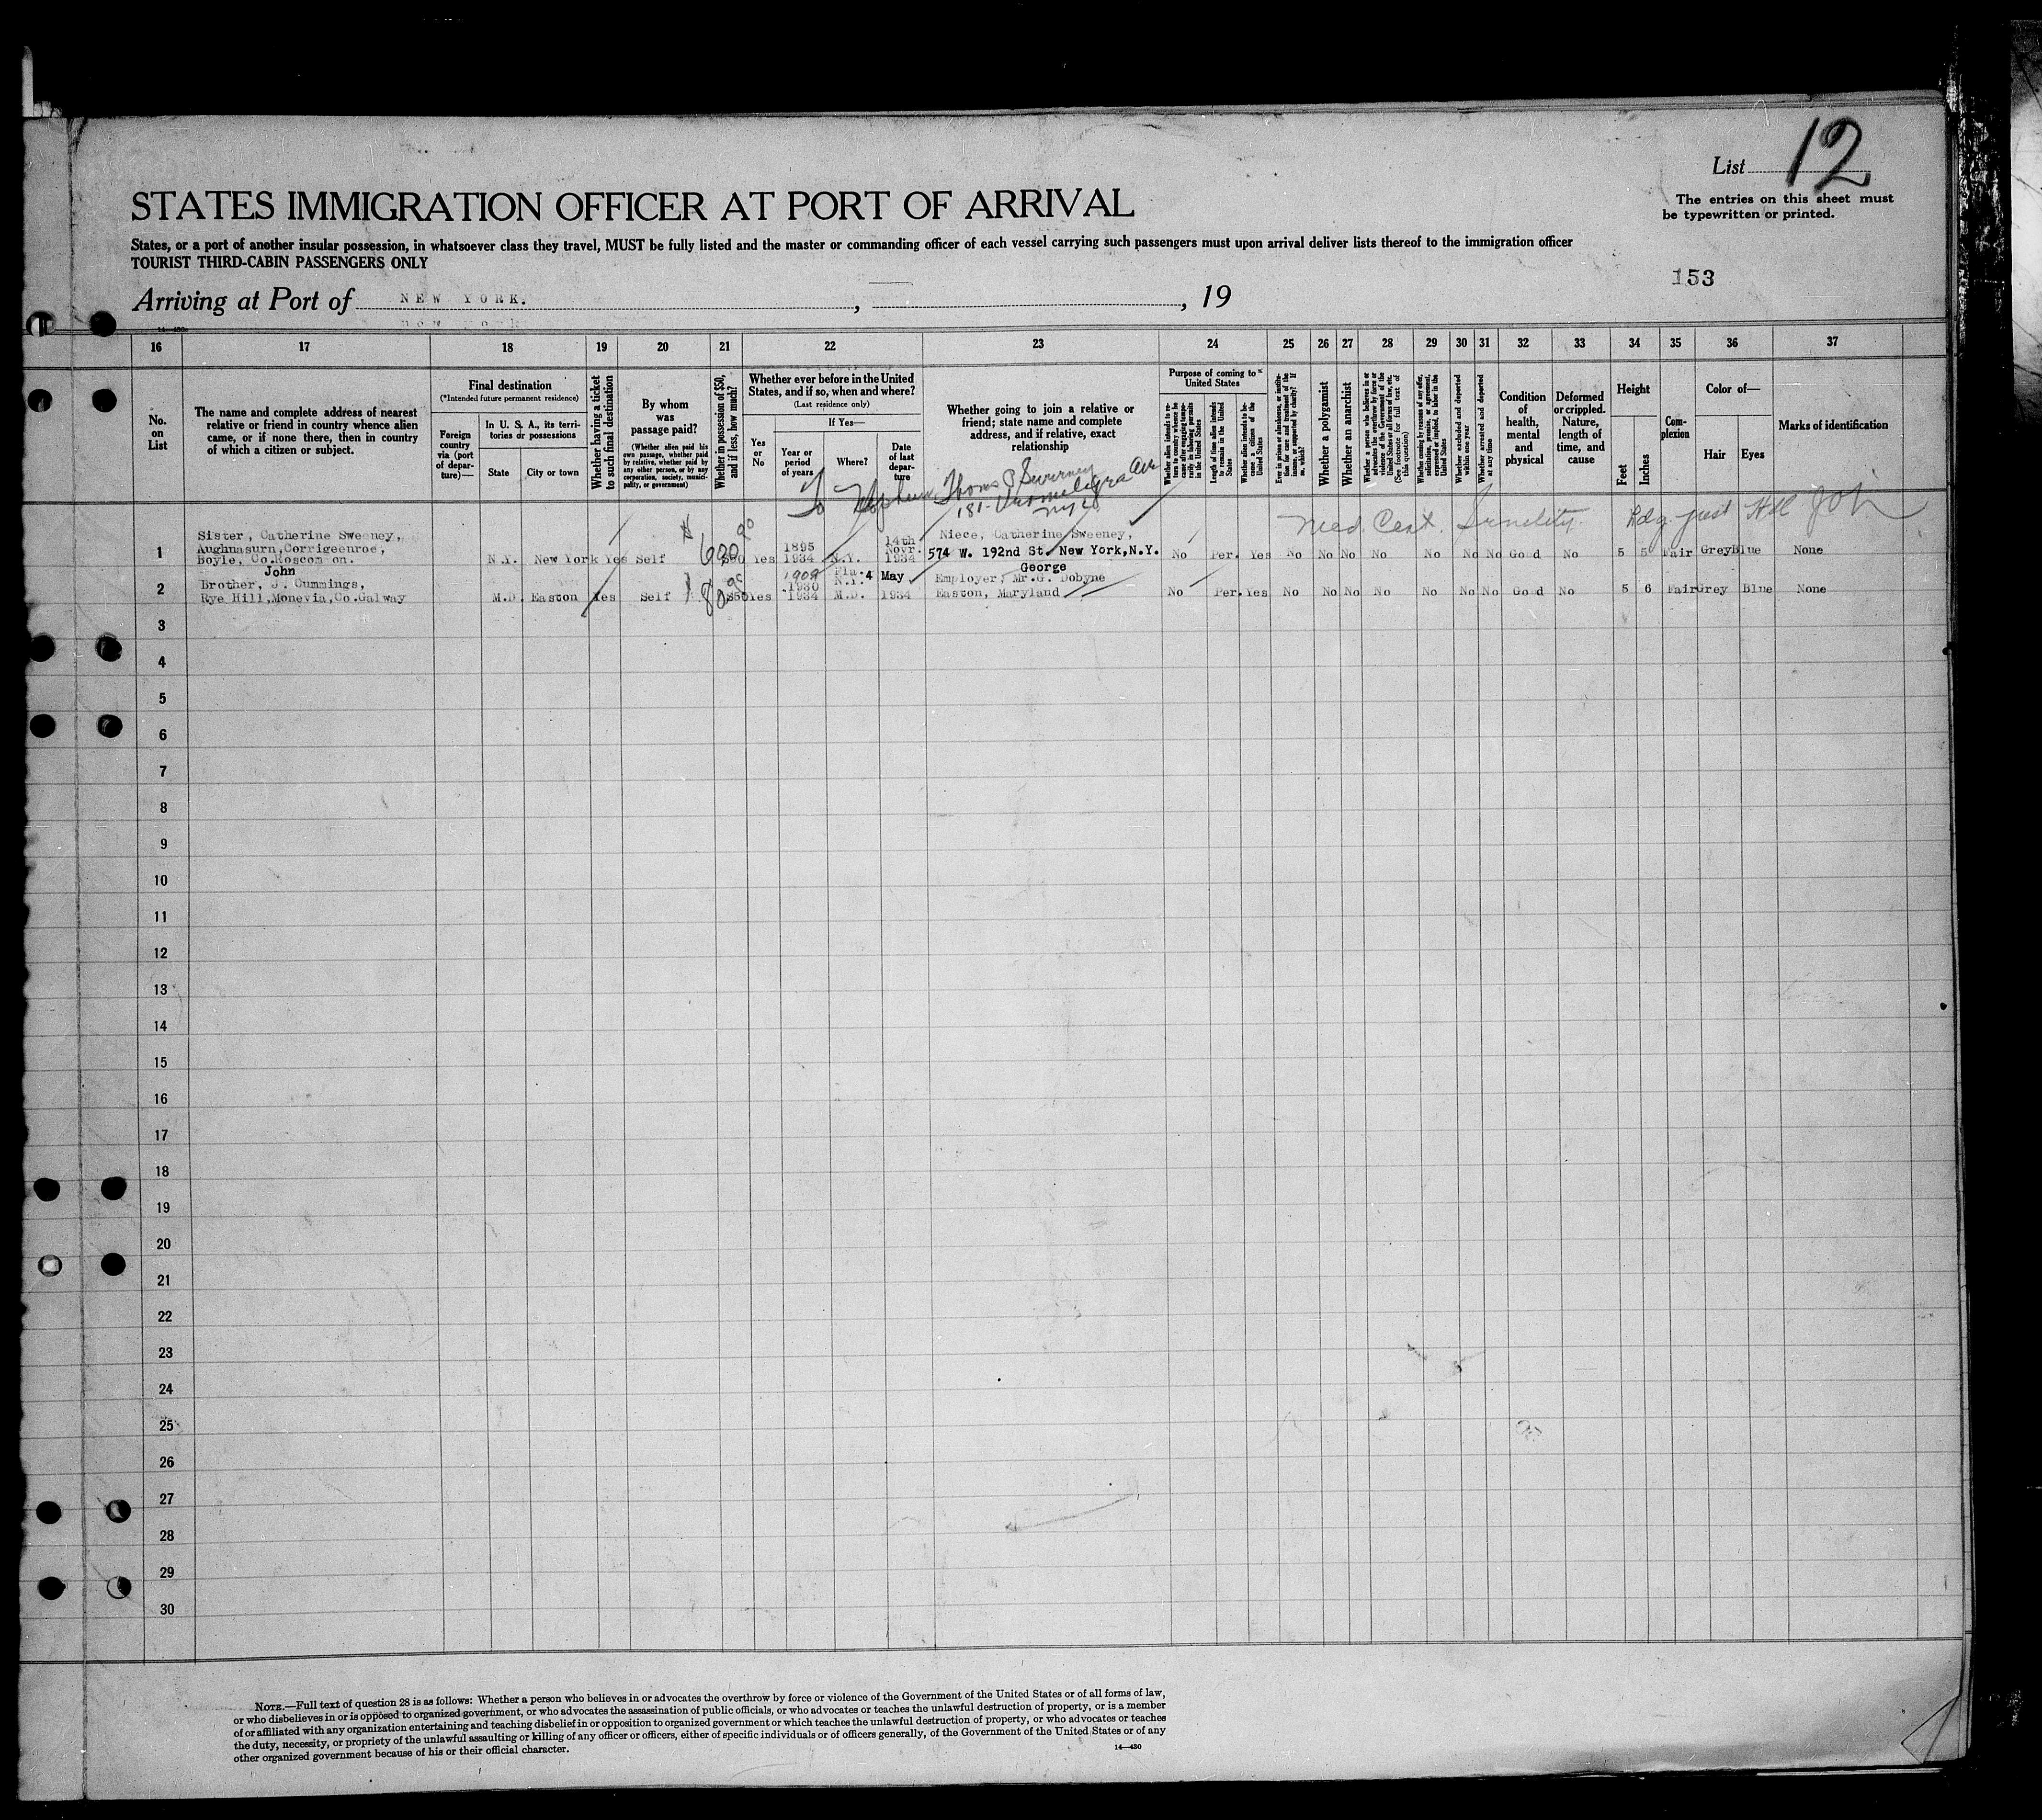 List 12
The entries on this sheet must
be typewritten or printed.
STATES IMMIGRATION OFFICER AT PORT OF ARRIVAL
States, or a port of another insular possession, in whatsoever class they travel, MUST be fully listed and the master or commanding officer of each vessel carrying such passengers must upon arrival deliver lists thereof to the immigration officer
TOURIST THIRD-CABIN PASSENGERS ONLY
153
Arriving at Port of NEW YORK. , , 19
16 17 18 19 20 21 22 23 24 25 26 27 28 29 30 31 32 33 34 35 36 37
No.
on
List
The name and complete address of nearest
relative or friend in country whence alien
came, or if none there, then in country
of which a citizen or subject.
Final destination
(*Intended future permanent residence)
Foreign
country
via (port
of depar-
ture)—
In U. S. A., its terri-
tories or possessions
State
City or town
Whether having a ticket
to such final destination
By whom
was
passage paid?
(Whether alien paid his
own passage, whether paid
by relative, whether paid by
any other person, or by any
corporation, society, munici-
pality, or government)
Whether in possession of $50,
and if less, how much?
Whether ever before in the United
States, and if so, when and where?
(Last residence only)
Yes
or
No
If Yes—
Year or
period
of years
Where?
Date
of last
depar-
ture
Whether going to join a relative or
friend; state name and complete
address, and if relative, exact
relationship
Purpose of coming to
United States
Whether alien intends to re-
turn to country whence he
came after engaging tempo-
rarily in laboring pursuits
in the United States
Length of time alien intends
to remain in the United
States
Whether alien intends to be-
come a citizen of the
United States
Ever in prison or almshouse, or institu-
tion for care and treatment of the
insane, or supported by charity? If
so, which?
Whether a polygamist
Whether an anarchist
Whether a person who believes in or
advocates the overthrow by force or
violence of the Government of the
United States or all forms of law, etc.
(See footnote for full text of
this question)
Whether coming by reason of any offer,
solicitation, promise, or agreement,
expressed or implied, to labor in the
United States
Whether excluded and deported
within one year
Whether arrested and deported
at any time
Condition
of
health,
mental
and
physical
Deformed
or crippled.
Nature,
length of
time, and
cause
Height
Feet
Inches
Com-
plexion
Color of—
Hair
Eyes
Marks of identification
To Nephew Thomas P Sweeney
181- Ave
NYC
Med. Cert. Senility.
1
Sister, Catherine Sweeney,
Aughnasurn,Corrigeenroe,
Boyle, Co.Roscommon.
N.Y. New York Yes Self $ 600 Yes
1895
1934 N.Y.
14th
Novr.
1934
Niece, Catherine Sweeney,
574 W. 192nd St. New York,N.Y.
No Per. Yes No No No No No No No Good No 5 5 Fair Grey Blue None
2
John
Brother, J. Cummings,
Rye Hill,Monevia,Co.Galway
M.D. Easton Yes Self $ 80 $50 Yes
1909
1930
1934
Fla.
N.Y.
M.D.
4 May
1934
George
Employer, Mr.G. Dobyne
Easton, Maryland
No Per. Yes No No No No No No No Good No 5 6 Fair Grey Blue None
3
4
5
6
7
8
9
10
11
12
13
14
15
16
17
18
19
20
21
22
23
24
25
26
27
28
29
30
NOTE.—Full text of question 28 is as follows: Whether a person who believes in or advocates the overthrow by force or violence of the Government of the United States or of all forms of law,
or who disbelieves in or is opposed to organized government, or who advocates the assassination of public officials, or who advocates or teaches the unlawful destruction of property, or is a member
of or affiliated with any organization entertaining and teaching disbelief in or opposition to organized government or which teaches the unlawful destruction of property, or who advocates or teaches
the duty, necessity, or propriety of the unlawful assaulting or killing of any officer or officers, either of specific individuals or of officers generally, of the Government of the United States or of any
other organized government because of his or their official character.
14—430